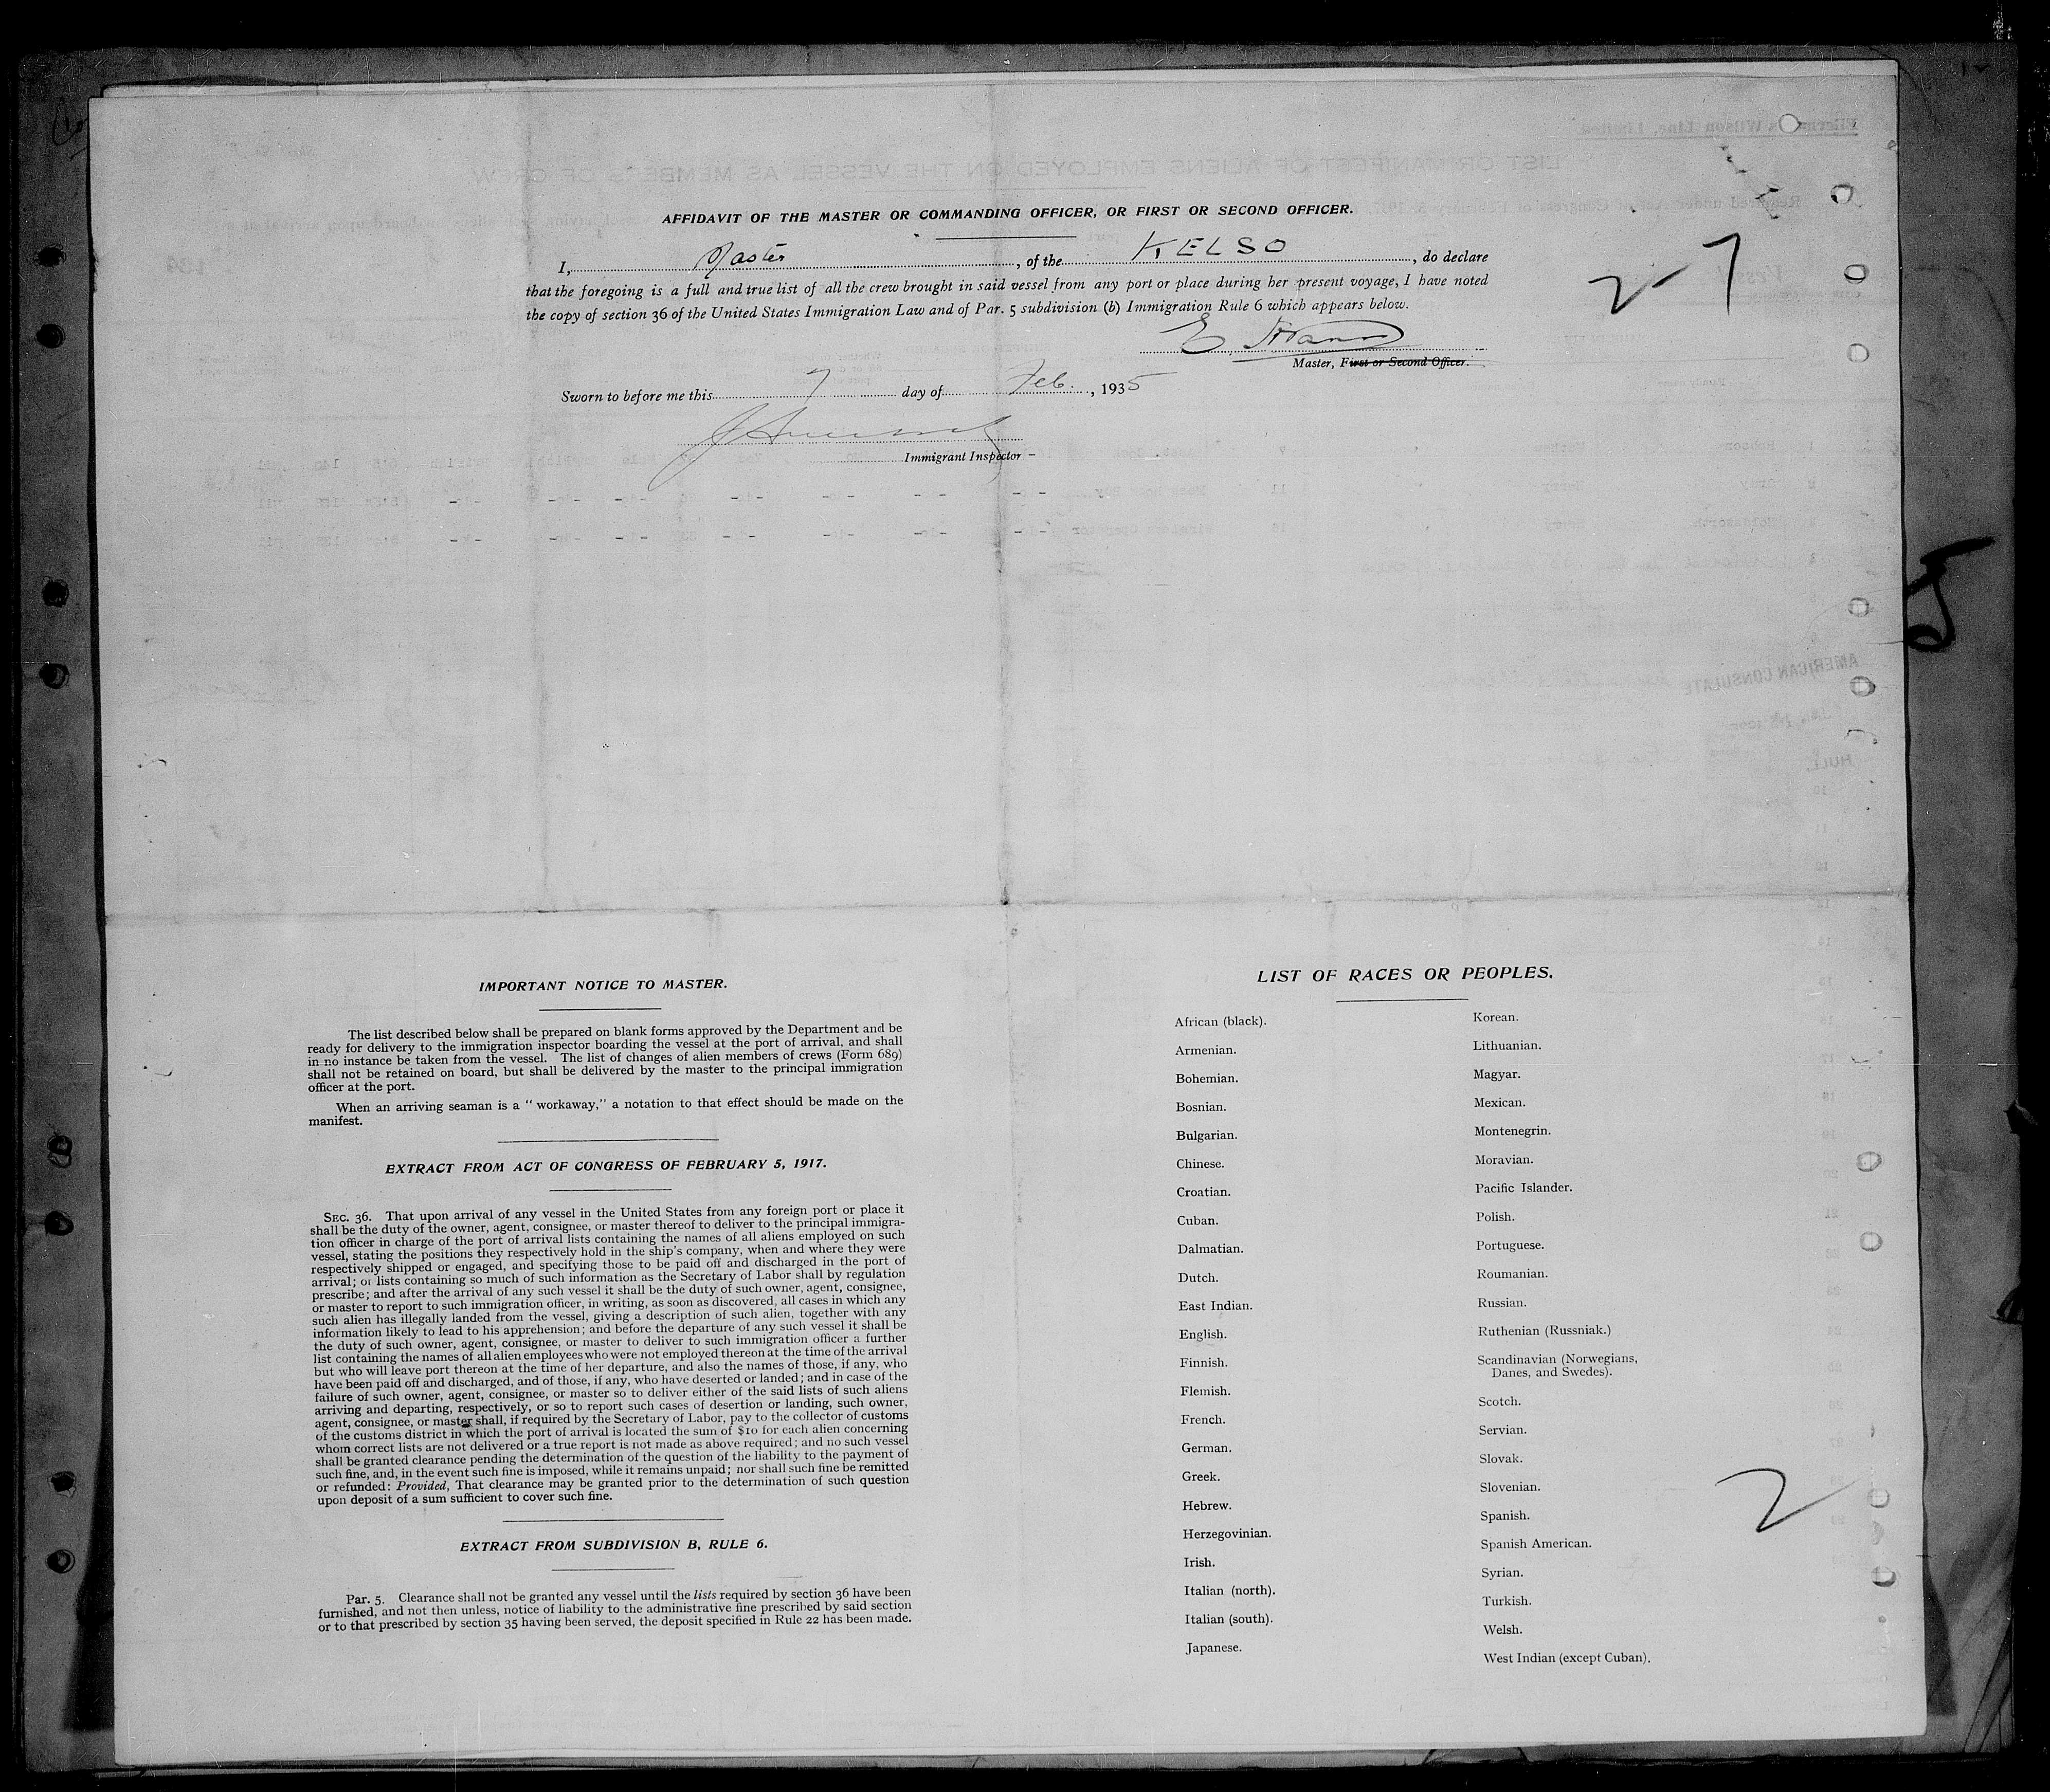 AFFIDAVIT OF THE MASTER OR COMMANDING OFFICER, OR FIRST OR SECOND OFFICER.
I, Master, of the KELSO, do declare
that the foregoing is a full and true list of all the crew brought in said vessel from any port or place during her present voyage, I have noted
the copy of section 36 of the United States Immigration Law and of Par. 5 subdivision (b) Immigration Rule 6 which appears below.
E
Master, First or Second Officer.
Sworn to before me this 7 day of Feb., 1935
Immigrant Inspector -
27
5
IMPORTANT NOTICE TO MASTER.
The list described below shall be prepared on blank forms approved by the Department and be
ready for delivery to the immigration inspector boarding the vessel at the port of arrival, and shall
in no instance be taken from the vessel. The list of changes of alien members of crews (Form 689)
shall not be retained on board, but shall be delivered by the master to the principal immigration
officer at the port.
When an arriving seaman is a " workaway," a notation to that effect should be made on the
manifest.
EXTRACT FROM ACT OF CONGRESS OF FEBRUARY 5, 1917.
SEC. 36. That upon arrival of any vessel in the United States from any foreign port or place it
shall be the duty of the owner, agent, consignee, or master thereof to deliver to the principal immigra-
tion officer in charge of the port of arrival lists containing the names of all aliens employed on such
vessel, stating the positions they respectively hold in the ship's company, when and where they were
respectively shipped or engaged, and specifying those to be paid off and discharged in the port of
arrival; or lists containing so much of such information as the Secretary of Labor shall by regulation
prescribe; and after the arrival of any such vessel it shall be the duty of such owner, agent, consignee,
or master to report to such immigration officer, in writing, as soon as discovered, all cases in which any
such alien has illegally landed from the vessel, giving a description of such alien, together with any
information likely to lead to his apprehension; and before the departure of any such vessel it shall be
the duty of such owner, agent, consignee, or master to deliver to such immigration officer a further
list containing the names of all alien employees who were not employed thereon at the time of the arrival
but who will leave port thereon at the time of her departure, and also the names of those, if any, who
have been paid off and discharged, and of those, if any, who have deserted or landed; and in case of the
failure of such owner, agent, consignee, or master so to deliver either of the said lists of such aliens
arriving and departing, respectively, or so to report such cases of desertion or landing, such owner,
agent, consignee, or master shall, if required by the Secretary of Labor, pay to the collector of customs
of the customs district in which the port of arrival is located the sum of $10 for each alien concerning
whom correct lists are not delivered or a true report is not made as above required; and no such vessel
shall be granted clearance pending the determination of the question of the liability to the payment of
such fine, and, in the event such fine is imposed, while it remains unpaid; nor shall such fine be remitted
or refunded: Provided, That clearance may be granted prior to the determination of such question
upon deposit of a sum sufficient to cover such fine.
EXTRACT FROM SUBDIVISION B, RULE 6.
Par. 5. Clearance shall not be granted any vessel until the lists required by section 36 have been
furnished, and not then unless, notice of liability to the administrative fine prescribed by said section
or to that prescribed by section 35 having been served, the deposit specified in Rule 22 has been made.
LIST OF RACES OR PEOPLES.
African (black).
Armenian.
Bohemian.
Bosnian.
Bulgarian.
Chinese.
Croatian.
Cuban.
Dalmatian.
Dutch.
East Indian.
English.
Finnish.
Flemish.
French.
German.
Greek.
Hebrew.
Herzegovinian.
Irish.
Italian (north).
Italian (south).
Japanese.
Korean.
Lithuanian.
Magyar.
Mexican.
Montenegrin.
Moravian.
Pacific Islander.
Polish.
Portuguese.
Roumanian.
Russian.
Ruthenian (Russniak.)
Scandinavian (Norwegians,
Danes, and Swedes).
Scotch.
Servian.
Slovak.
Slovenian.
Spanish.
Spanish American.
Syrian.
Turkish.
Welsh.
West Indian (except Cuban).
2